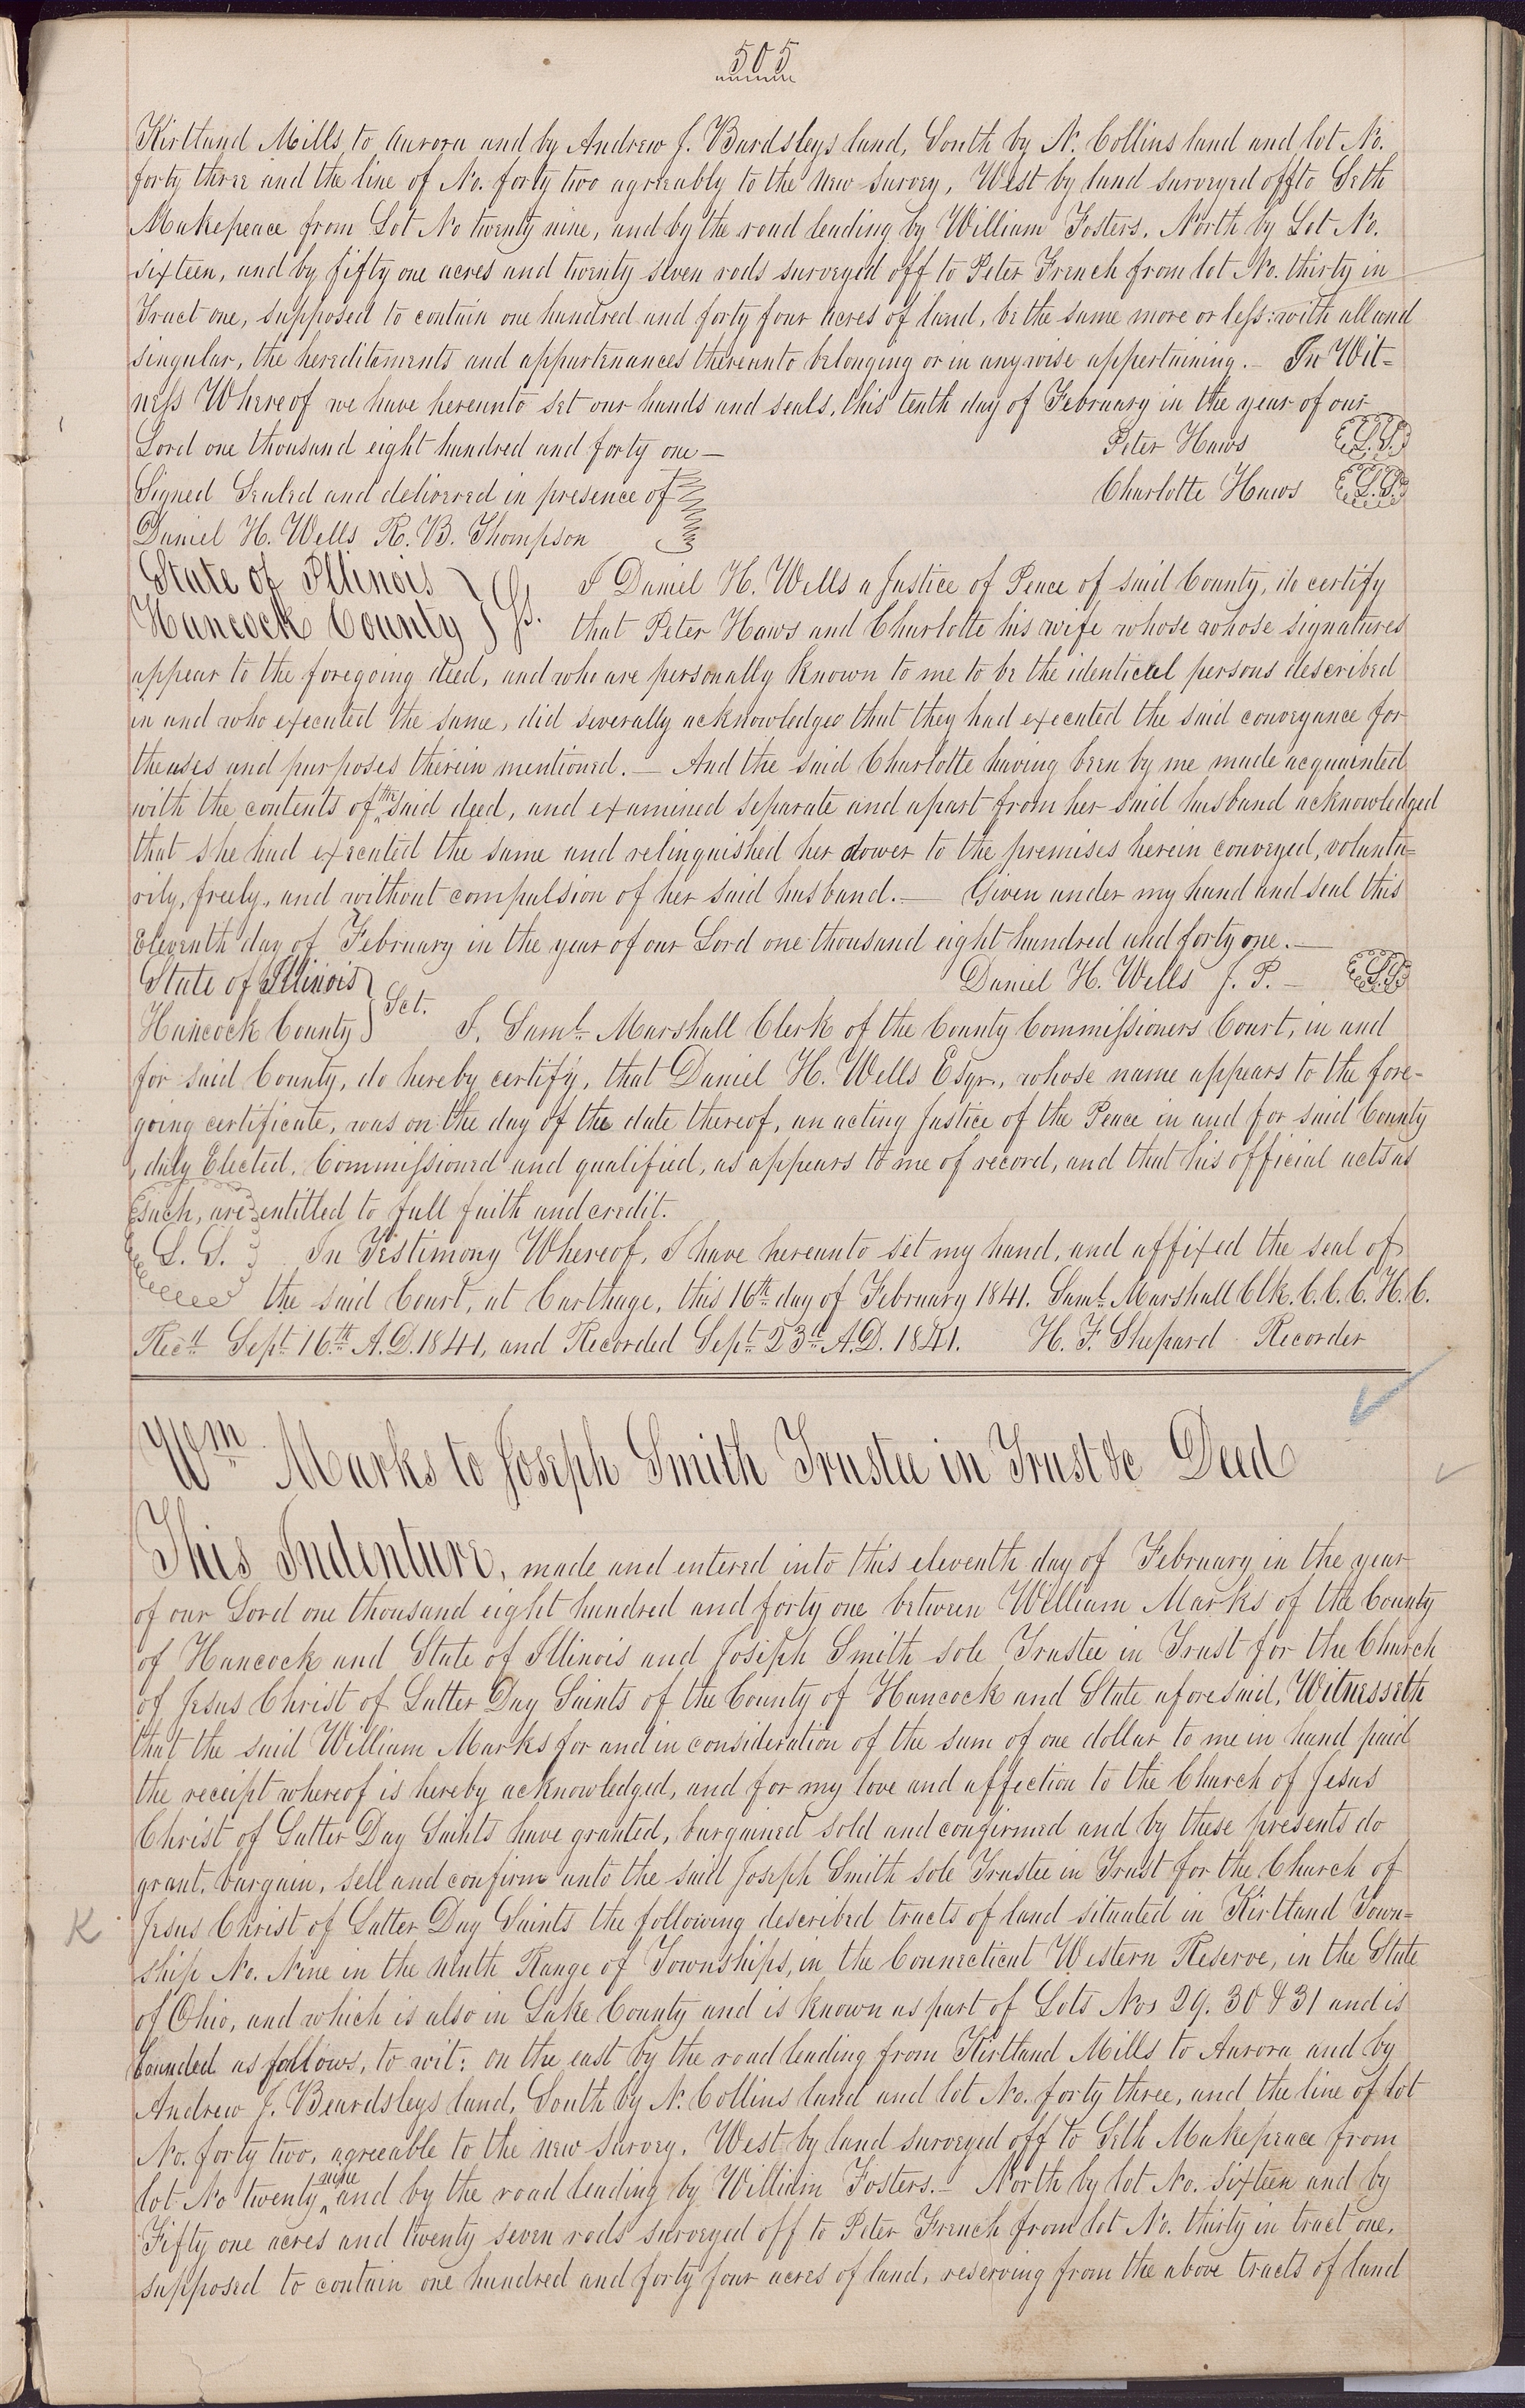 505
Kirtland Mills, to Aurora and by Andrew J. Bardsleys land, South by N. Collins land and lot No.
forty three and the line of No. forty two agreeably to the new survey, West by land surveyed off to Seth
Makepeace from Lot No twenty nine, and by the road leading by William Fosters, North by Lot No.
sixteen, and by fifty one acres and twenty seven rods surveyed off to Peter French from lot No. thirty in
Tract one, supposed to contain one hundred and forty four acres of land, be the same more or less: with all and
singular, the hereditaments and appurtenances thereunto belonging or in anywise appertaining. — In Wit=
ness Whereof we have hereunto set our hands and seals, this tenth day of February in the year of our
Lord one thousand eight hundred and forty one — Peter Haws L.S.
Signed Sealed and delivered in presence of Charlotte Haws L.S.
Daniel H. Wells R. B. Thompson
State of Illinois } Ss. I Daniel H. Wells a Justice of Peace of said County, do certify
Hancock County that Peter Haws and Charlotte his wife whose whose signatures
appear to the foregoing deed, and who are personally known to me to be the identical persons described
in and who executed the same, did severally acknowledged that they had executed the said conveyance for
the uses and purposes therein mentioned. — And the said Charlotte having been by me made acquainted
with the contents of the said deed, and examined separate and apart from her said husband acknowledged
that she had executed the same and relinquished her dower to the premises herein conveyed, volunta=
rily, freely, and without compulsion of her said husband. — Given under my hand and seal this
Eleventh day of February in the year of our Lord one thousand eight hundred and forty one. —
State of Illinois } Sct. Daniel H. Wells J. P. — L.S.
Hancock County I. Saml. Marshall Clerk of the County Commissioners Court, in and
for said County, do hereby certify, that Daniel H. Wells Esqr., whose name appears to the fore-
going certificate, was on the day of the date thereof, an acting Justice of the Peace in and for said County
, duly Elected, Commissioned and qualified, as appears to me of record, and that his official acts as
such, are entitled to full faith and credit.
L. S. In Testimony Whereof, I have hereunto set my hand, and affixed the seal of
the said Court, at Carthage, this 16th day of February 1841. Saml. Marshall Clk. C. C. C. H. C.
Recd. Sept. 16th A.D. 1841, and Recorded Sept. 23d A.D. 1841. H. F. Shepard Recorder
Wm Marks to Joseph Smith Trustee in Trust &c Deed
This Indenture, made and entered into this eleventh day of February in the year
of our Lord one thousand eight hundred and forty one between William Marks of the County
of Hancock and State of Illinois and Joseph Smith sole Trustee in Trust for the Church
of Jesus Christ of Latter Day Saints of the County of Hancock and State aforesaid, Witnesseth
that the said William Marks for and in consideration of the sum of one dollar to me in hand paid
the receipt whereof is hereby acknowledged, and for my love and affection to the Church of Jesus
Christ of Latter Day Saints have granted, bargained sold and confirmed and by these presents do
grant, bargain, sell and confirm unto the said Joseph Smith sole Trustee in Trust for the Church of
K Jesus Christ of Latter Day Saints the following described tracts of land situated in Kirtland Town=
ship No. Nine in the ninth Range of Townships, in the Connecticut Western Reserve, in the State
of Ohio, and which is also in Lake County and is known as part of Lots Nos 29. 30 & 31 and is
bounded as follows, to wit: on the east by the road leading from Kirtland Mills to Aurora and by
Andrew J. Beardsleys land, South by N. Collins land and lot No. forty three, and the line of lot
No. forty two, agreeable to the new survey. West by land surveyed off to Seth Makepeace from
lot No twenty nine and by the road leading by William Fosters. — North by lot No. sixteen and by
Fifty one acres and twenty seven rods surveyed off to Peter French from lot No. thirty in tract one,
supposed to contain one hundred and forty four acres of land, reserving from the above tracts of land